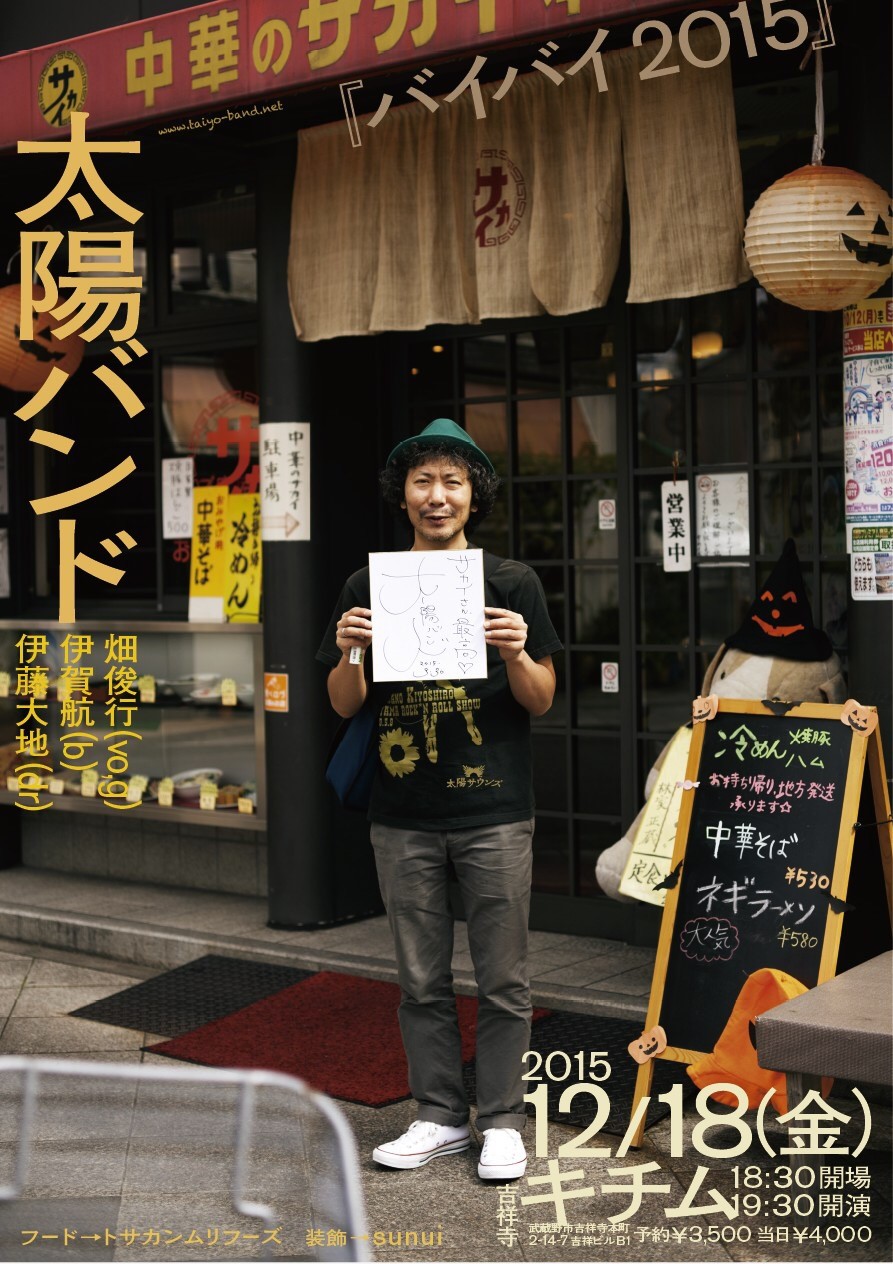 中華のサカイ
サカイ
『バイバイ2015』
www.taiyo-band.net
太陽バンド
畑俊行(vo,g)
伊賀航(b)
伊藤大地(dr)
サカイ
中華のサカイ
駐車場
中華そば
冷めん
営業中
サカイさん
最高♡
太陽バンド
2015.
9.30
KIYOSHIRO
ROCK'N ROLL SHOW
太陽サウンズ
10/12(月)
当店へ
どちらも
使えます
林家正蔵
定食
冷めん 焼豚
ハム
お持ち帰り、地方発送
承ります☆
中華そば
¥530
ネギラーメン
大人気
¥580
2015
12/18(金)
吉祥寺
キチム
18:30開場
19:30開演
武蔵野市吉祥寺本町
2-14-7吉祥ビルB1
予約¥3,500 当日¥4,000
フード→トサカンムリフーズ 装飾→sunui